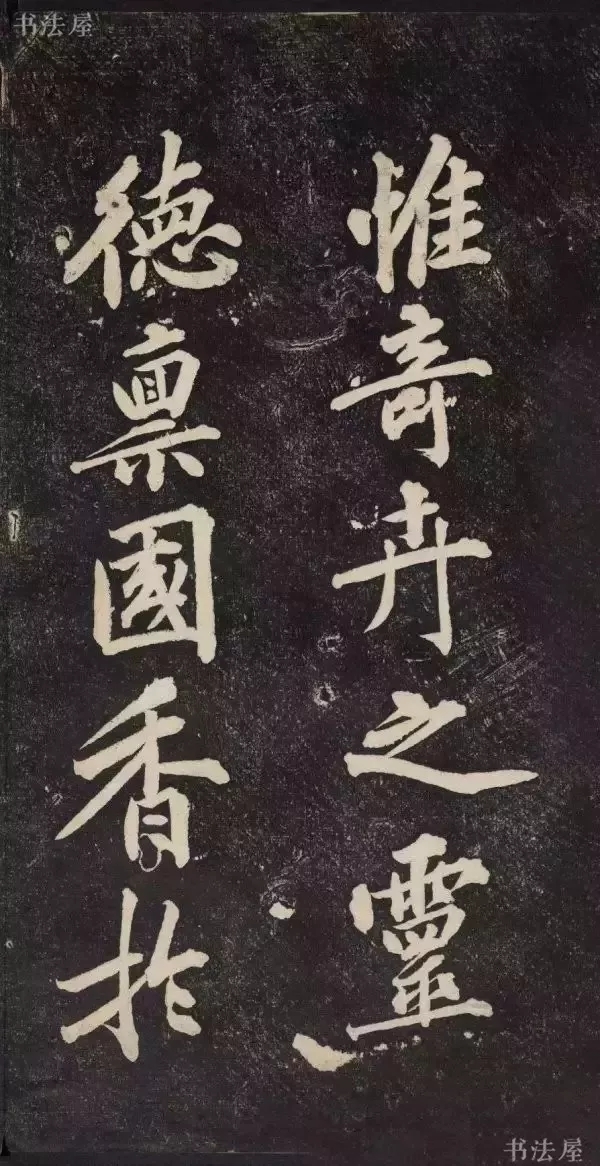 书法屋
惟奇卉之靈
德禀國香於
书法屋